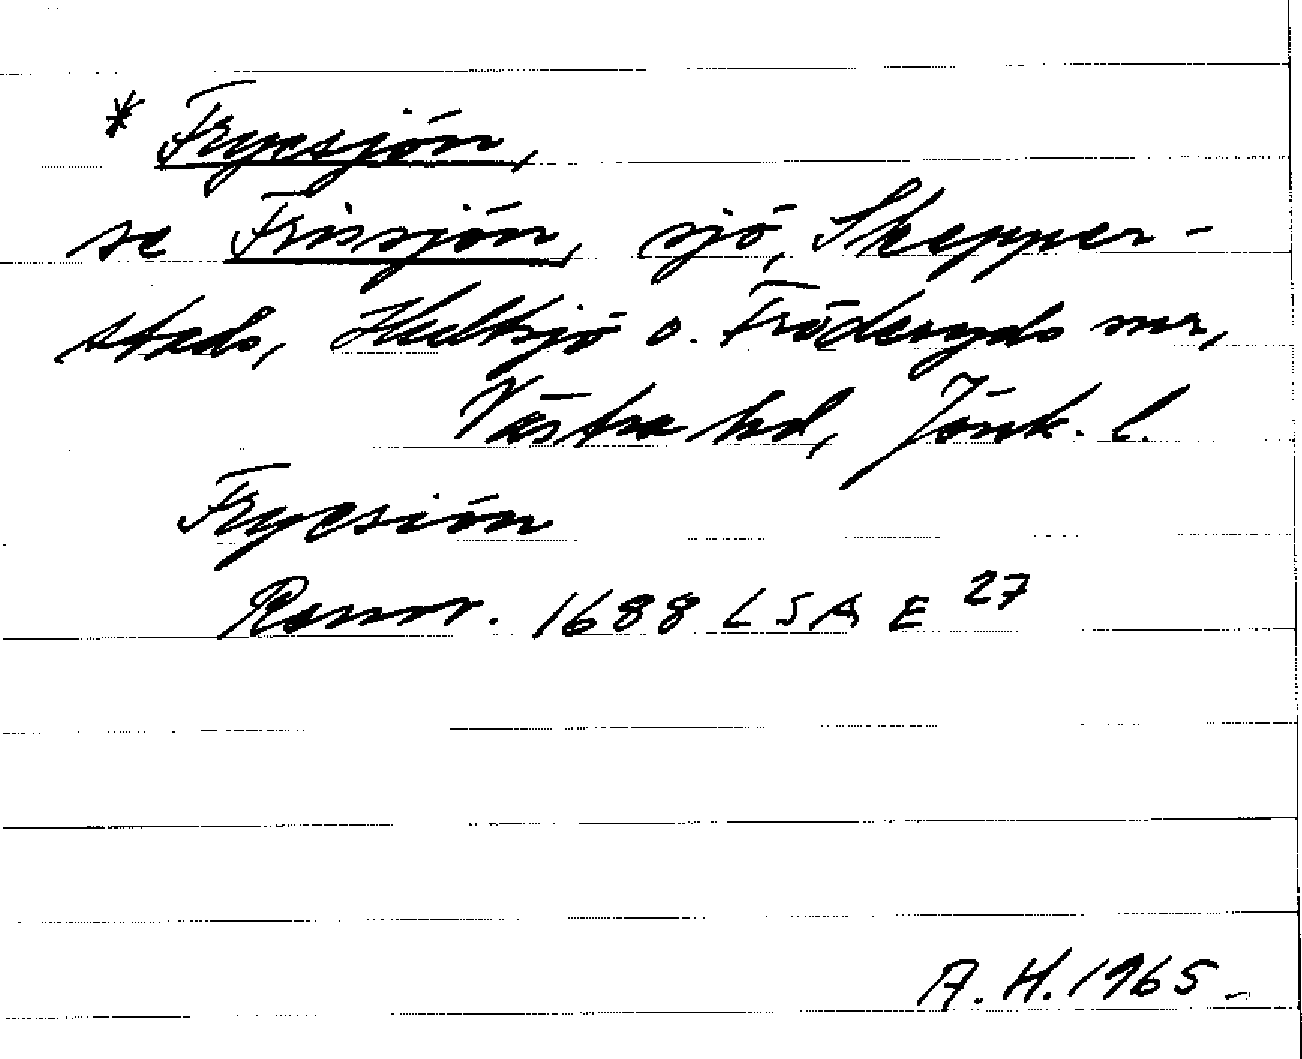 * Frycsjön,
se Frissjön, sjö, Skepper-
stads, Hultsjö o. Fröderyds snr,
Västra hd, Jönk. l.
Frycsiön
Rannr. 1688 LSA E 27
A. H. 1965 -